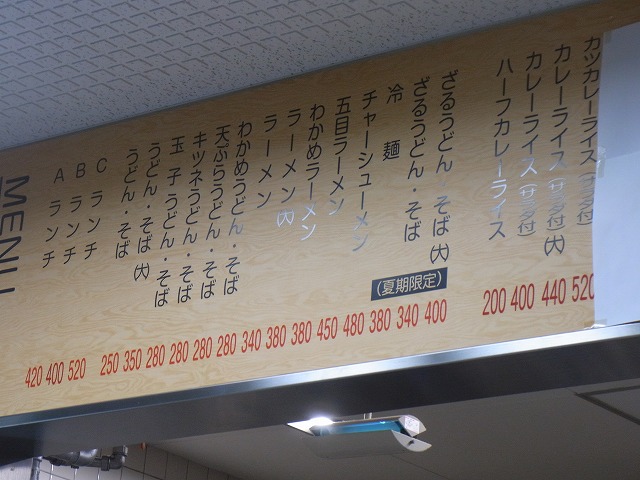 MENU
Aランチ 420
Bランチ 400
Cランチ 520
うどん・そば 250
うどん・そば(大) 350
玉子うどん・そば 280
キツネうどん・そば 280
天ぷらうどん・そば 280
わかめうどん・そば 280
ラーメン 340
ラーメン(大) 380
わかめラーメン 380
五目ラーメン 450
チャーシューメン 480
冷麺 380
ざるうどん・そば 340
ざるうどん・そば(大) 400
(夏期限定)
ハーフカレーライス 200
カレーライス(サラダ付) 400
カレーライス(サラダ付)(大) 440
カツカレーライス(サラダ付) 520